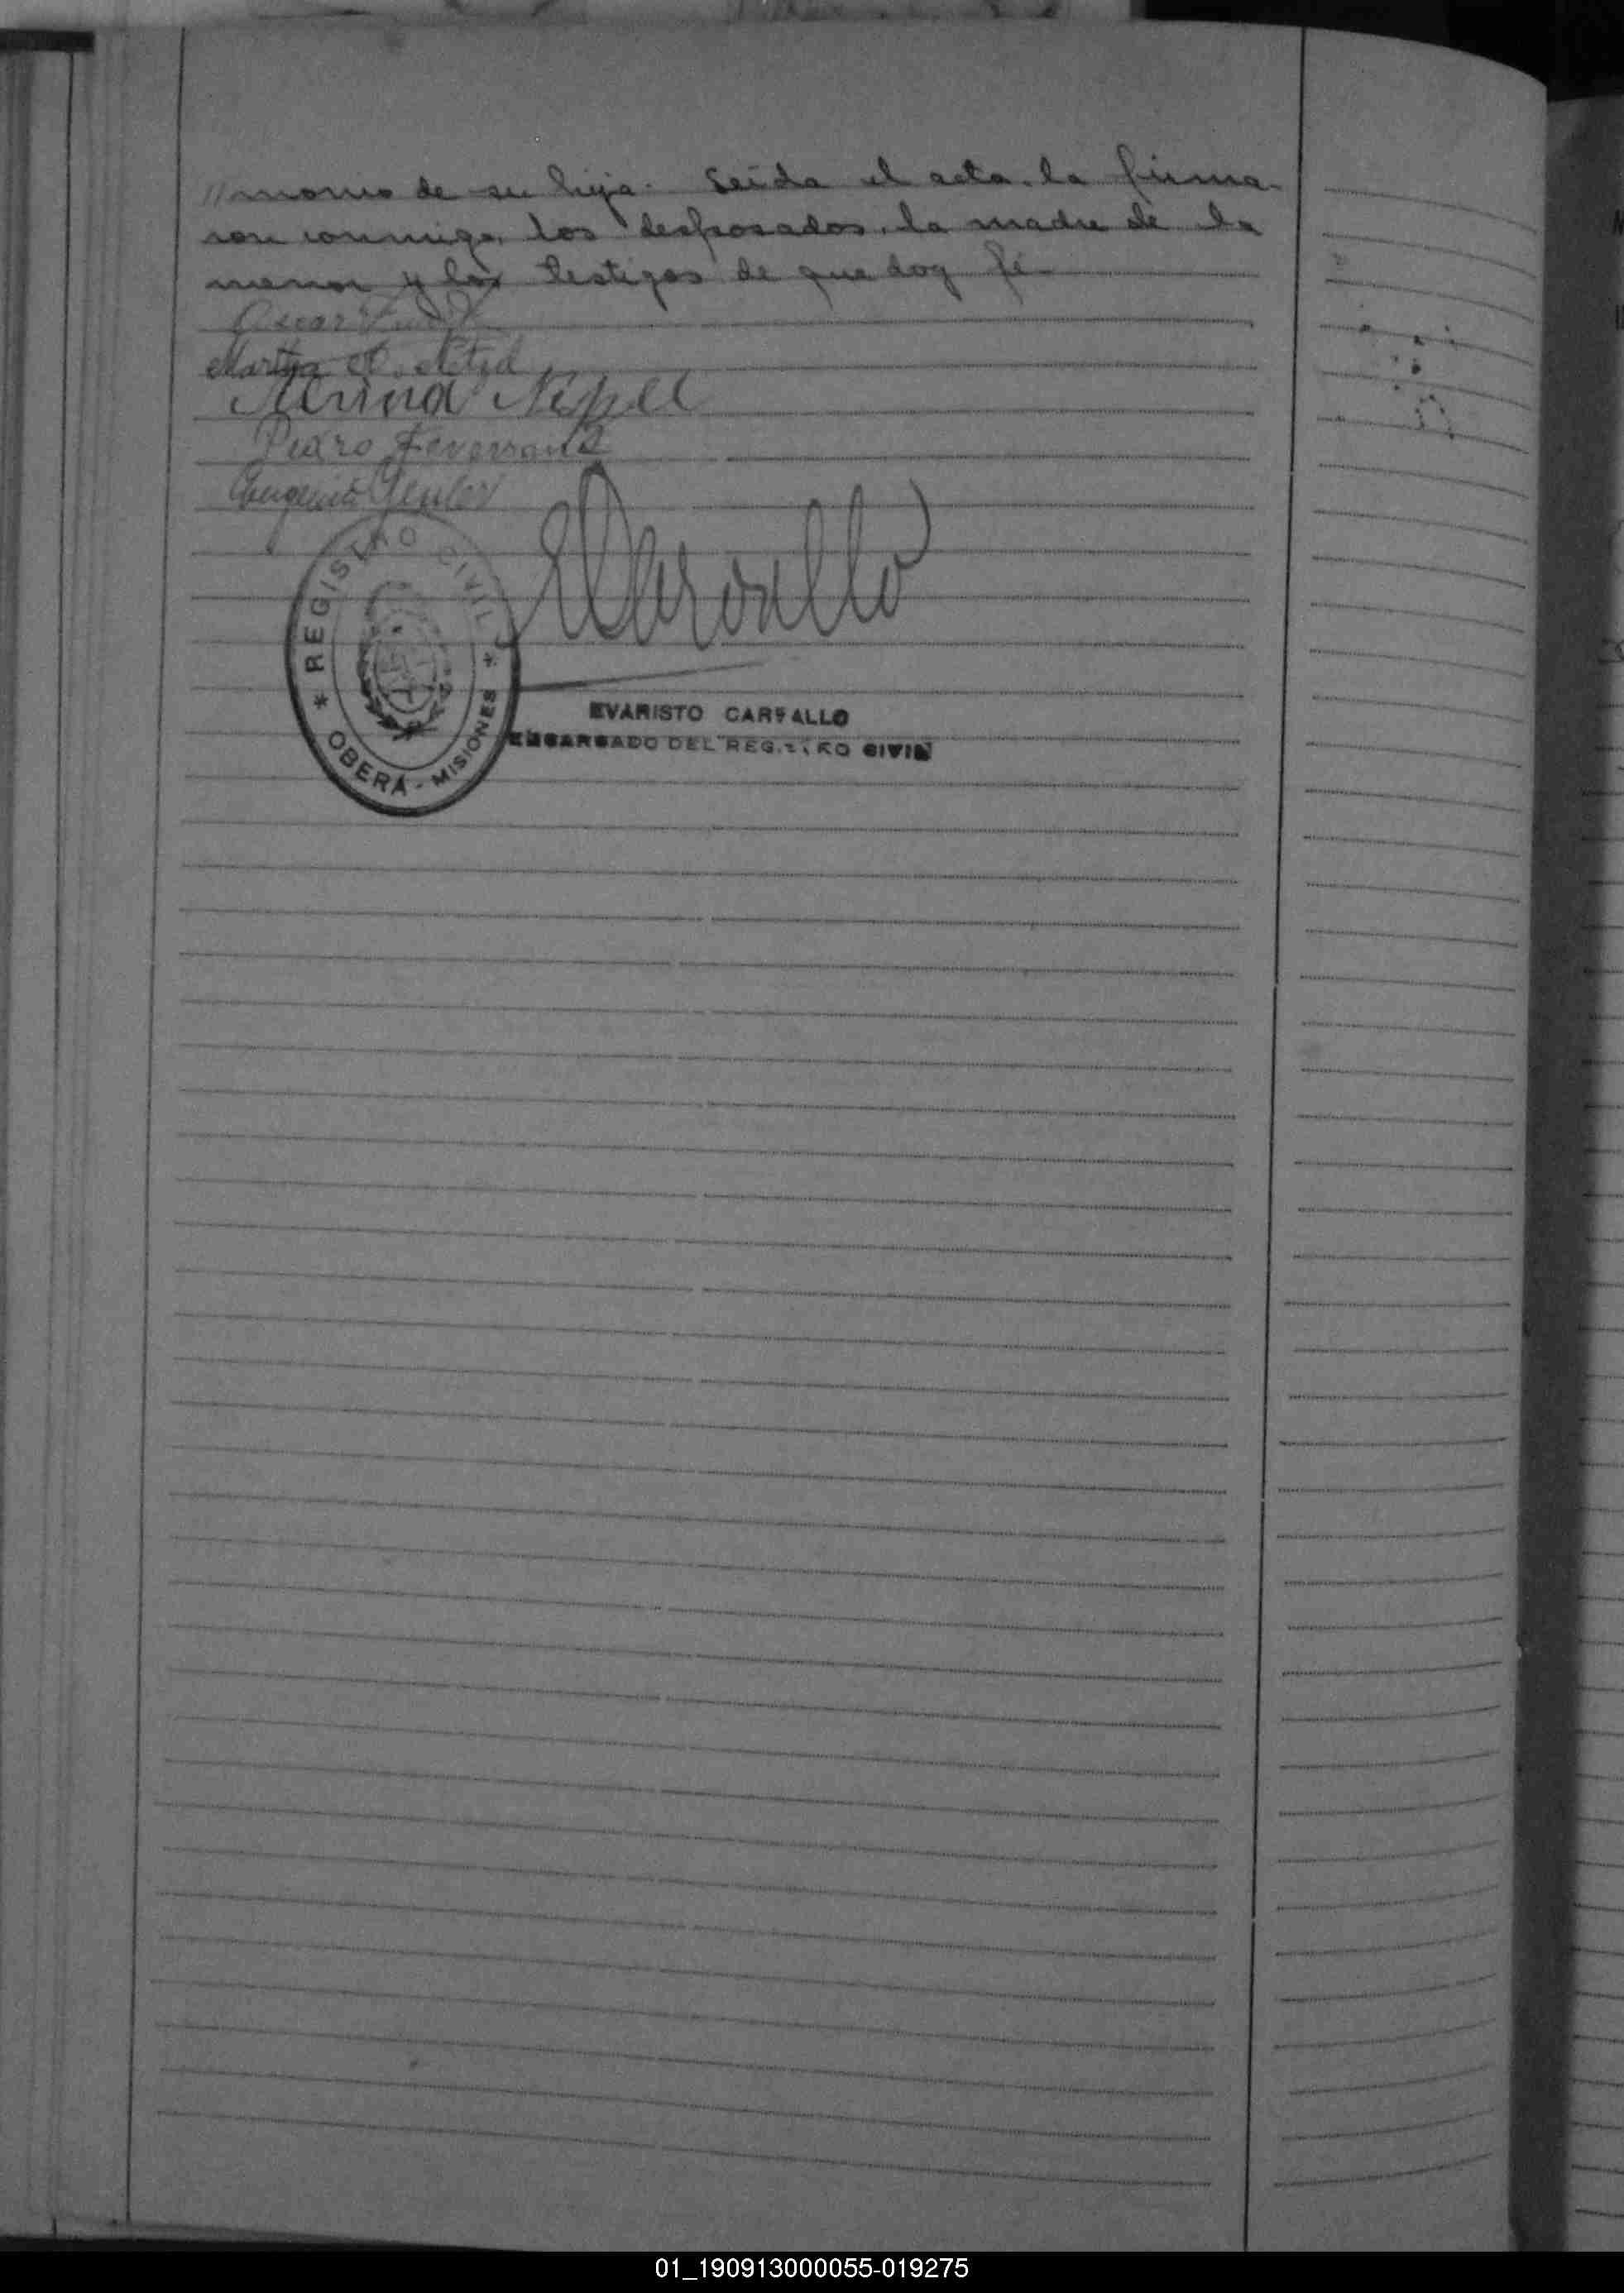 //monio de su hija. Leída el acta, la firma-
ron conmigo, los desposados, la madre de la
menor y los testigos de que doy fé
Oscar
Martha
Pedro
REGISTRO CIVIL
OBERÁ - MISIONES
EVARISTO CARVALLO
ENCARGADO DEL REGISTRO CIVIL
01_190913000055-019275